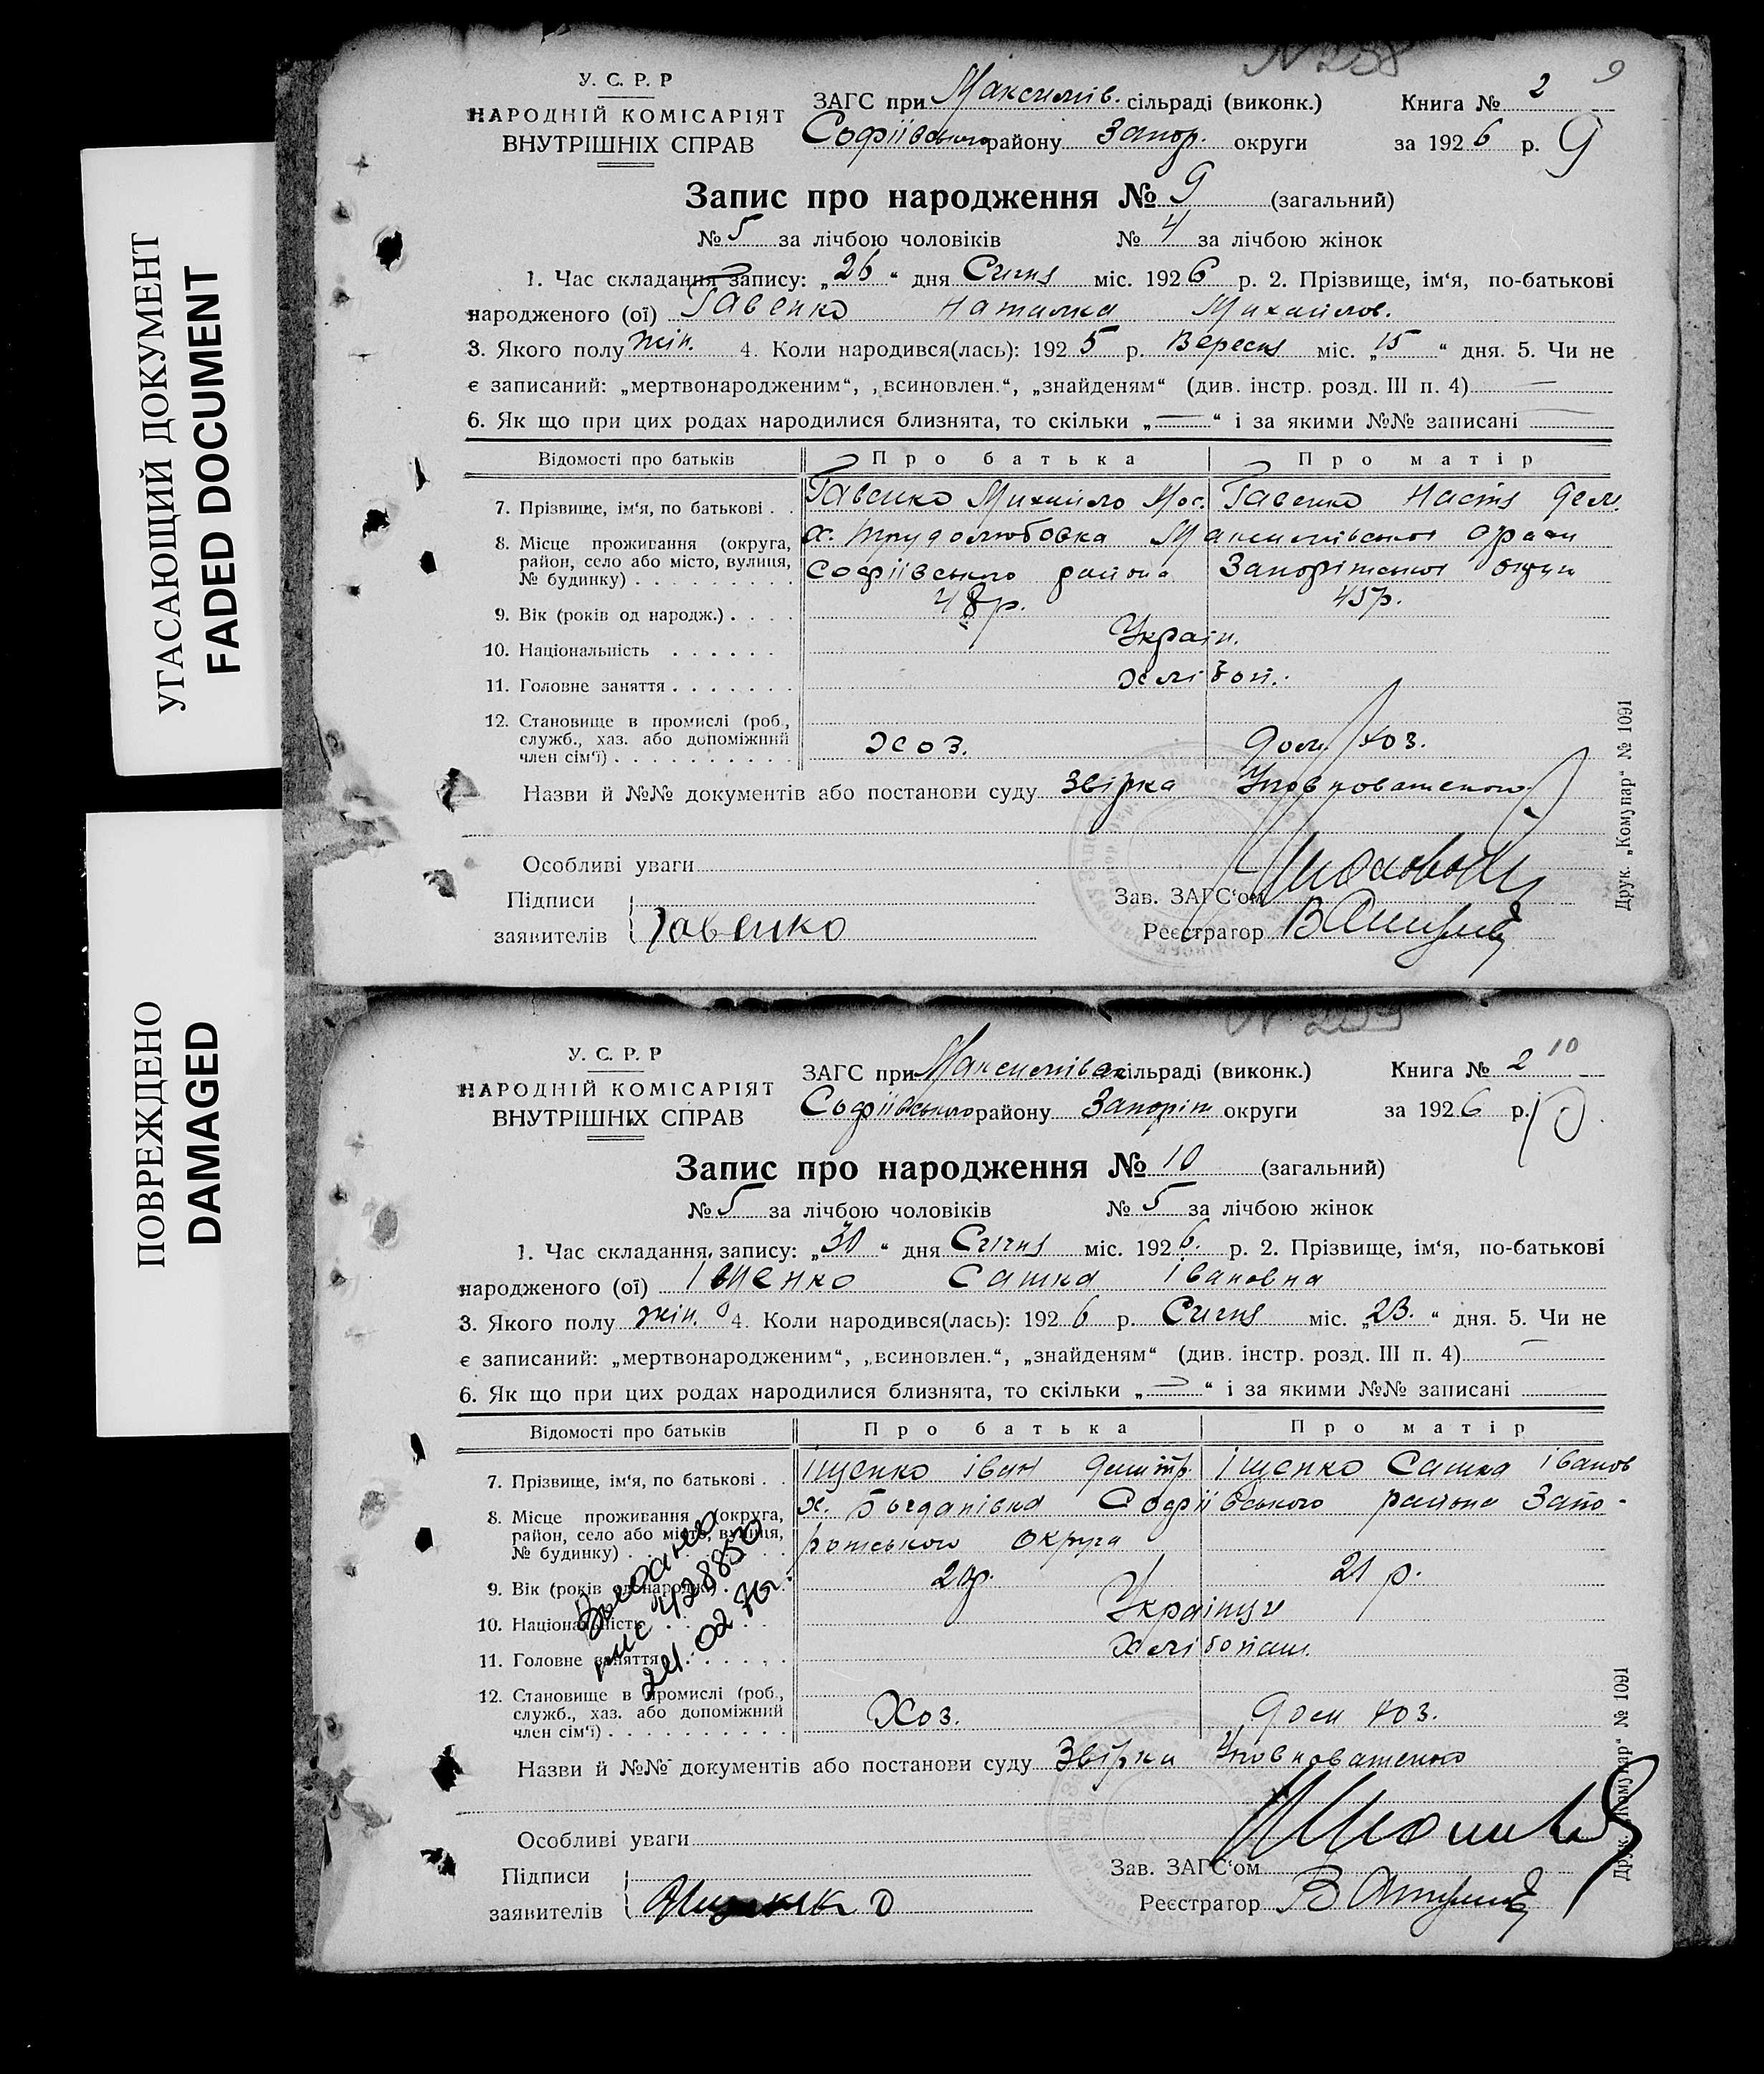 УГАСАЮЩИЙ ДОКУМЕНТ
FADED DOCUMENT
ПОВРЕЖДЕНО
DAMAGED
N 238
9
У. С. Р. Р
НАРОДНІЙ КОМІСАРІЯТ
ВНУТРІШНІХ СПРАВ
ЗАГС при Максимів. сільраді (виконк.) Книга № 2
Софіївського району Запор. округи за 1926 р. 9
Запис про народження № 9 (загальний)
№ 5 за лічбою чоловіків № 4 за лічбою жінок
1. Час складання запису: „26“ дня Січня міс. 1926 р. 2. Прізвище, ім‘я, по-батькові
народженого (ої) Гавенко Наталка Михайлов.
3. Якого полу жін. 4. Коли народився(лась): 1925 р. Вересня міс. „15“ дня. 5. Чи не
є записаний: „мертвонародженим“, „всиновлен.“, „знайденям“ (див. інстр. розд. III п. 4)
6. Як що при цих родах народилися близнята, то скільки „—“ і за якими №№ записані
Відомості про батьків Про батька Про матір
7. Прізвище, ім‘я, по батькові . . Гавенко Михайло Мос. Гавенко Настя Дем.
8. Місце проживання (округа, х. Трудолюбовка Максимівської сради
район, село або місто, вулиця, Софіївського района Запоріжської округи
№ будинку)
9. Вік (років од народж.) . . . . 48р. 45р.
10. Національність . . . . . . Україн.
11. Головне заняття . . . . . . . хлібоп.
12. Становище в промислі (роб.,
служб., хаз. або допоміжний хоз. дом. хоз.
член сім‘ї) . . . . . . . . . .
Назви й №№ документів або постанови суду Звірка Уповноваженого
Особливі уваги
Підписи Зав. ЗАГС‘ом
заявителів Гавенко Реєстратор
Друк. „Комунар“ № 1091
N 239
10
У. С. Р. Р
НАРОДНІЙ КОМІСАРІЯТ
ВНУТРІШНІХ СПРАВ
ЗАГС при Максимівск сільраді (виконк.) Книга № 2
Софіївського району Запоріж округи за 1926 р. 10
Запис про народження № 10 (загальний)
№ 5 за лічбою чоловіків № 5 за лічбою жінок
1. Час складання запису: „30“ дня Січня міс. 1926. р. 2. Прізвище, ім‘я, по-батькові
народженого (ої) Іщенко Сашка Івановна
3. Якого полу жін. 4. Коли народився(лась): 1926 р. Січня міс. „23.“ дня. 5. Чи не
є записаний: „мертвонародженим“, „всиновлен.“, „знайденям“ (див. інстр. розд. III п. 4)
6. Як що при цих родах народилися близнята, то скільки „—“ і за якими №№ записані
Відомості про батьків Про батька Про матір
7. Прізвище, ім‘я, по батькові . . Іщенко Іван Дмитр. Іщенко Сашка Іванов
8. Місце проживання (округа, х. Богданівка Софіївського района Запо-
район, село або місто, вулиця, рожського округа
№ будинку)
9. Вік (років од народж.) 21 р.
10. Національність . . . . . . Українци
11. Головне заняття . . . . . . Хлібопаш.
12. Становище в промислі (роб.,
служб., хаз. або допоміжний Хоз. дом хоз.
член сім‘ї) . . . . . . . . . .
428850
24.02.76г
Назви й №№ документів або постанови суду Звірки Уповноваженого
Особливі уваги
Підписи Зав. ЗАГС‘ом
заявителів Реєстратор
Друк. „Комунар“ № 1091